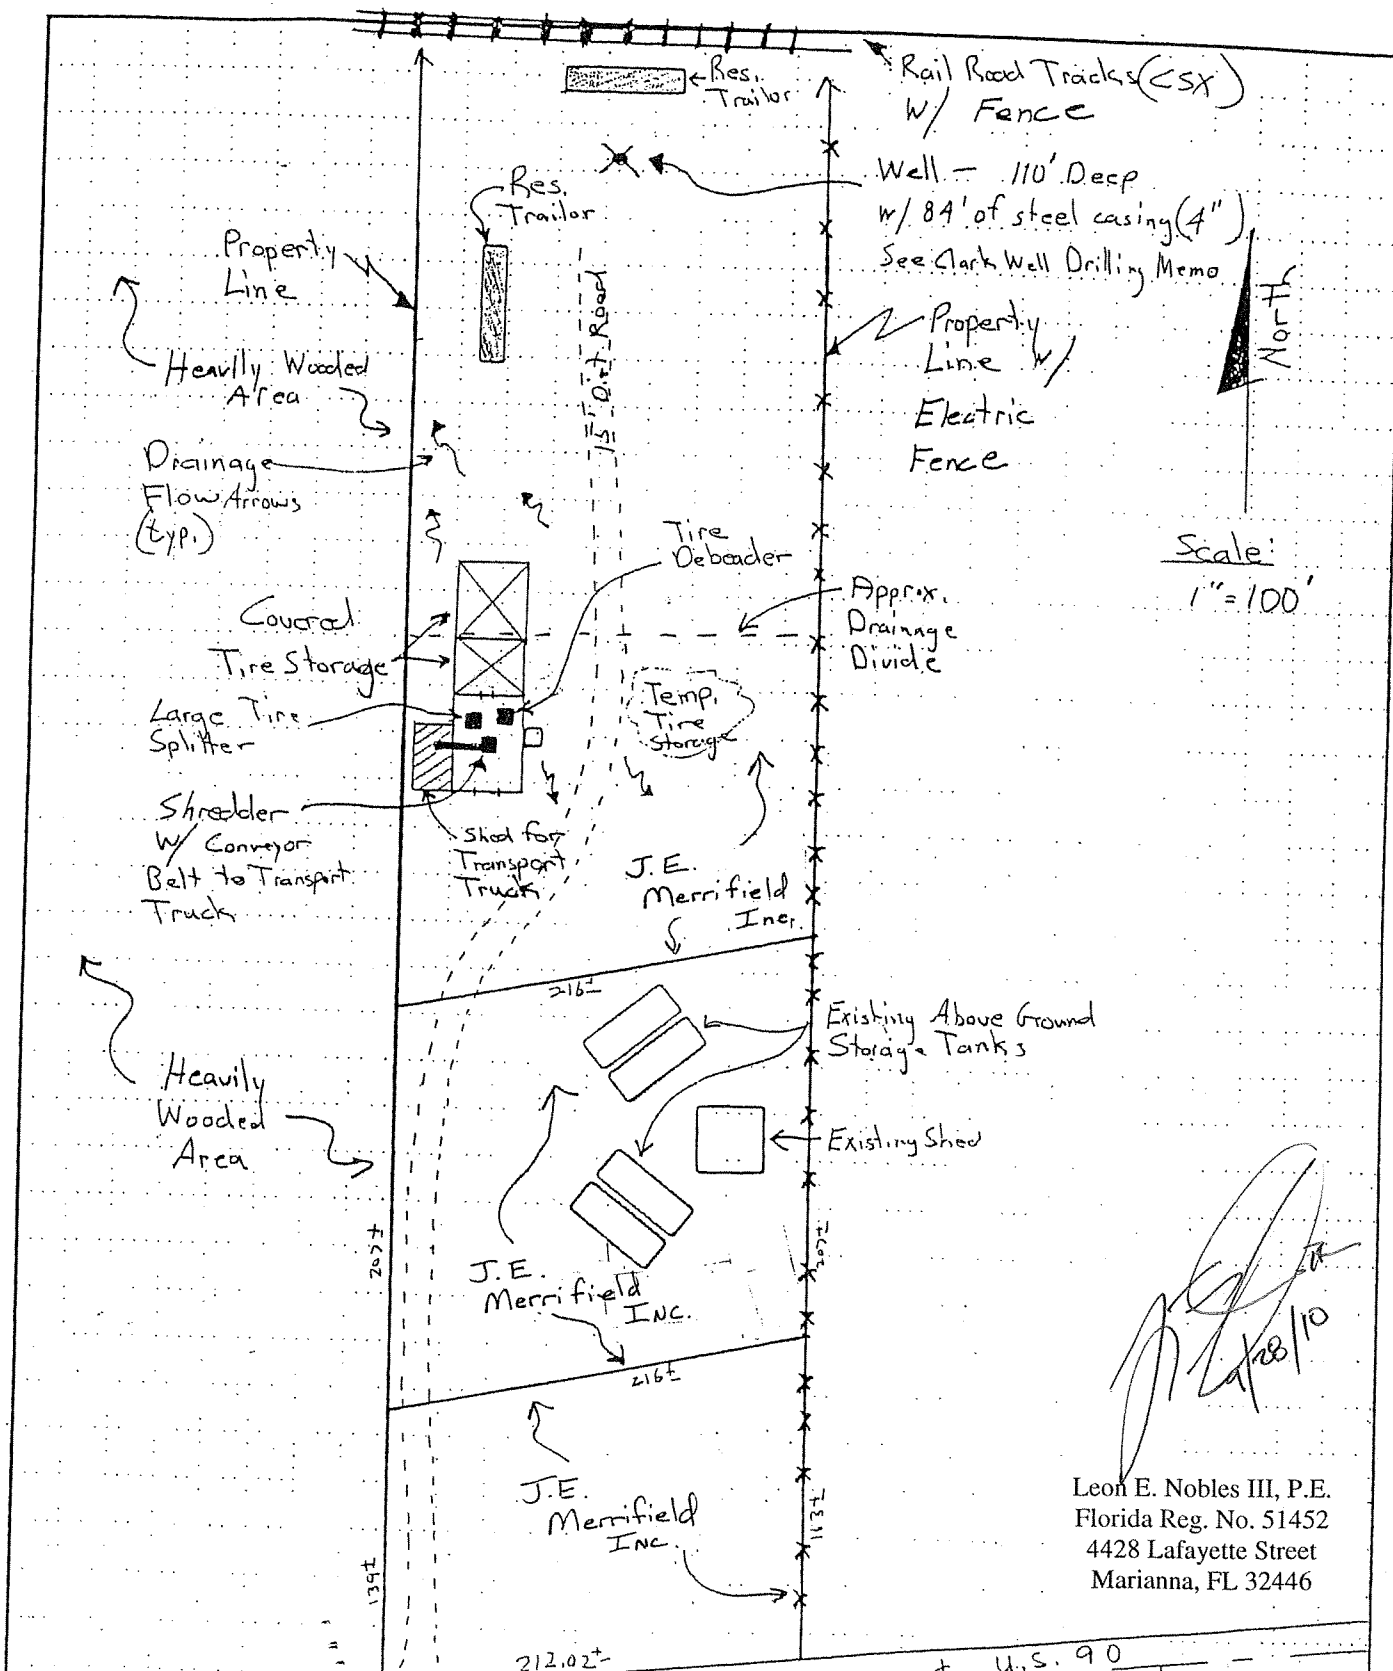 Rail Road Tracks (CSX)
W/ Fence
Res.
Trailor
Well - 110' Deep
w/ 84' of steel casing (4")
See Clark Well Drilling Memo
Res.
Trailor
Property
Line
North
Property
Line w/
Electric
Fence
15' Dirt Road
Heavily Wooded
Area
Drainage
Flow Arrows
(typ.)
Scale:
1"=100'
Tire
Debeader
Approx.
Drainage
Divide
Covered
Tire Storage
Temp.
Tire
Storage
Large Tire
Splitter
Shredder
W/ Conveyor
Belt to Transport
Truck
Shed for
Transport
Truck
J.E.
Merrifield
Inc.
216±
Existing Above Ground
Storage Tanks
Heavily
Wooded
Area
Existing Shed
207±
207±
J.E.
Merrifield
INC.
216±
J.E.
Merrifield
INC.
113±
139±
Leon E. Nobles III, P.E.
Florida Reg. No. 51452
4428 Lafayette Street
Marianna, FL 32446
212.02±
U.S. 90